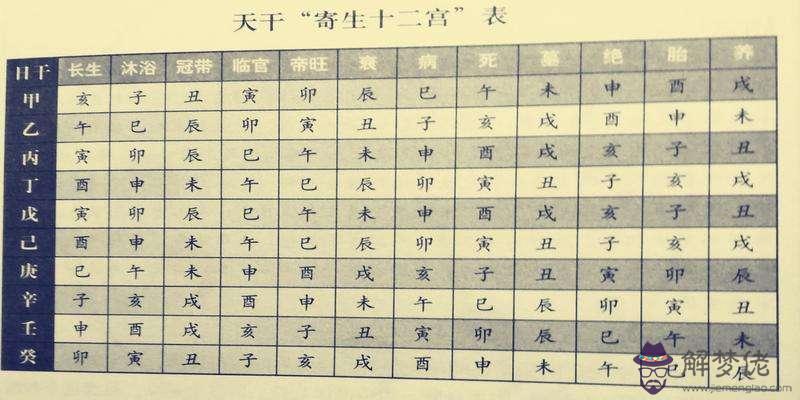 天干“寄生十二宫”表
日干 长生 沐浴 冠带 临官 帝旺 衰 病 死 墓 绝 胎 养
甲 亥 子 丑 寅 卯 辰 巳 午 未 申 酉 戌
乙 午 巳 辰 卯 寅 丑 子 亥 戌 酉 申 未
丙 寅 卯 辰 巳 午 未 申 酉 戌 亥 子 丑
丁 酉 申 未 午 巳 辰 卯 寅 丑 子 亥 戌
戊 寅 卯 辰 巳 午 未 申 酉 戌 亥 子 丑
己 酉 申 未 午 巳 辰 卯 寅 丑 子 亥 戌
庚 巳 午 未 申 酉 戌 亥 子 丑 寅 卯 辰
辛 子 亥 戌 酉 申 未 午 巳 辰 卯 寅 丑
壬 申 酉 戌 亥 子 丑 寅 卯 辰 巳 午 未
癸 卯 寅 丑 子 亥 戌 酉 申 未 午 巳 辰
解梦佬
www.jiemenglao.com